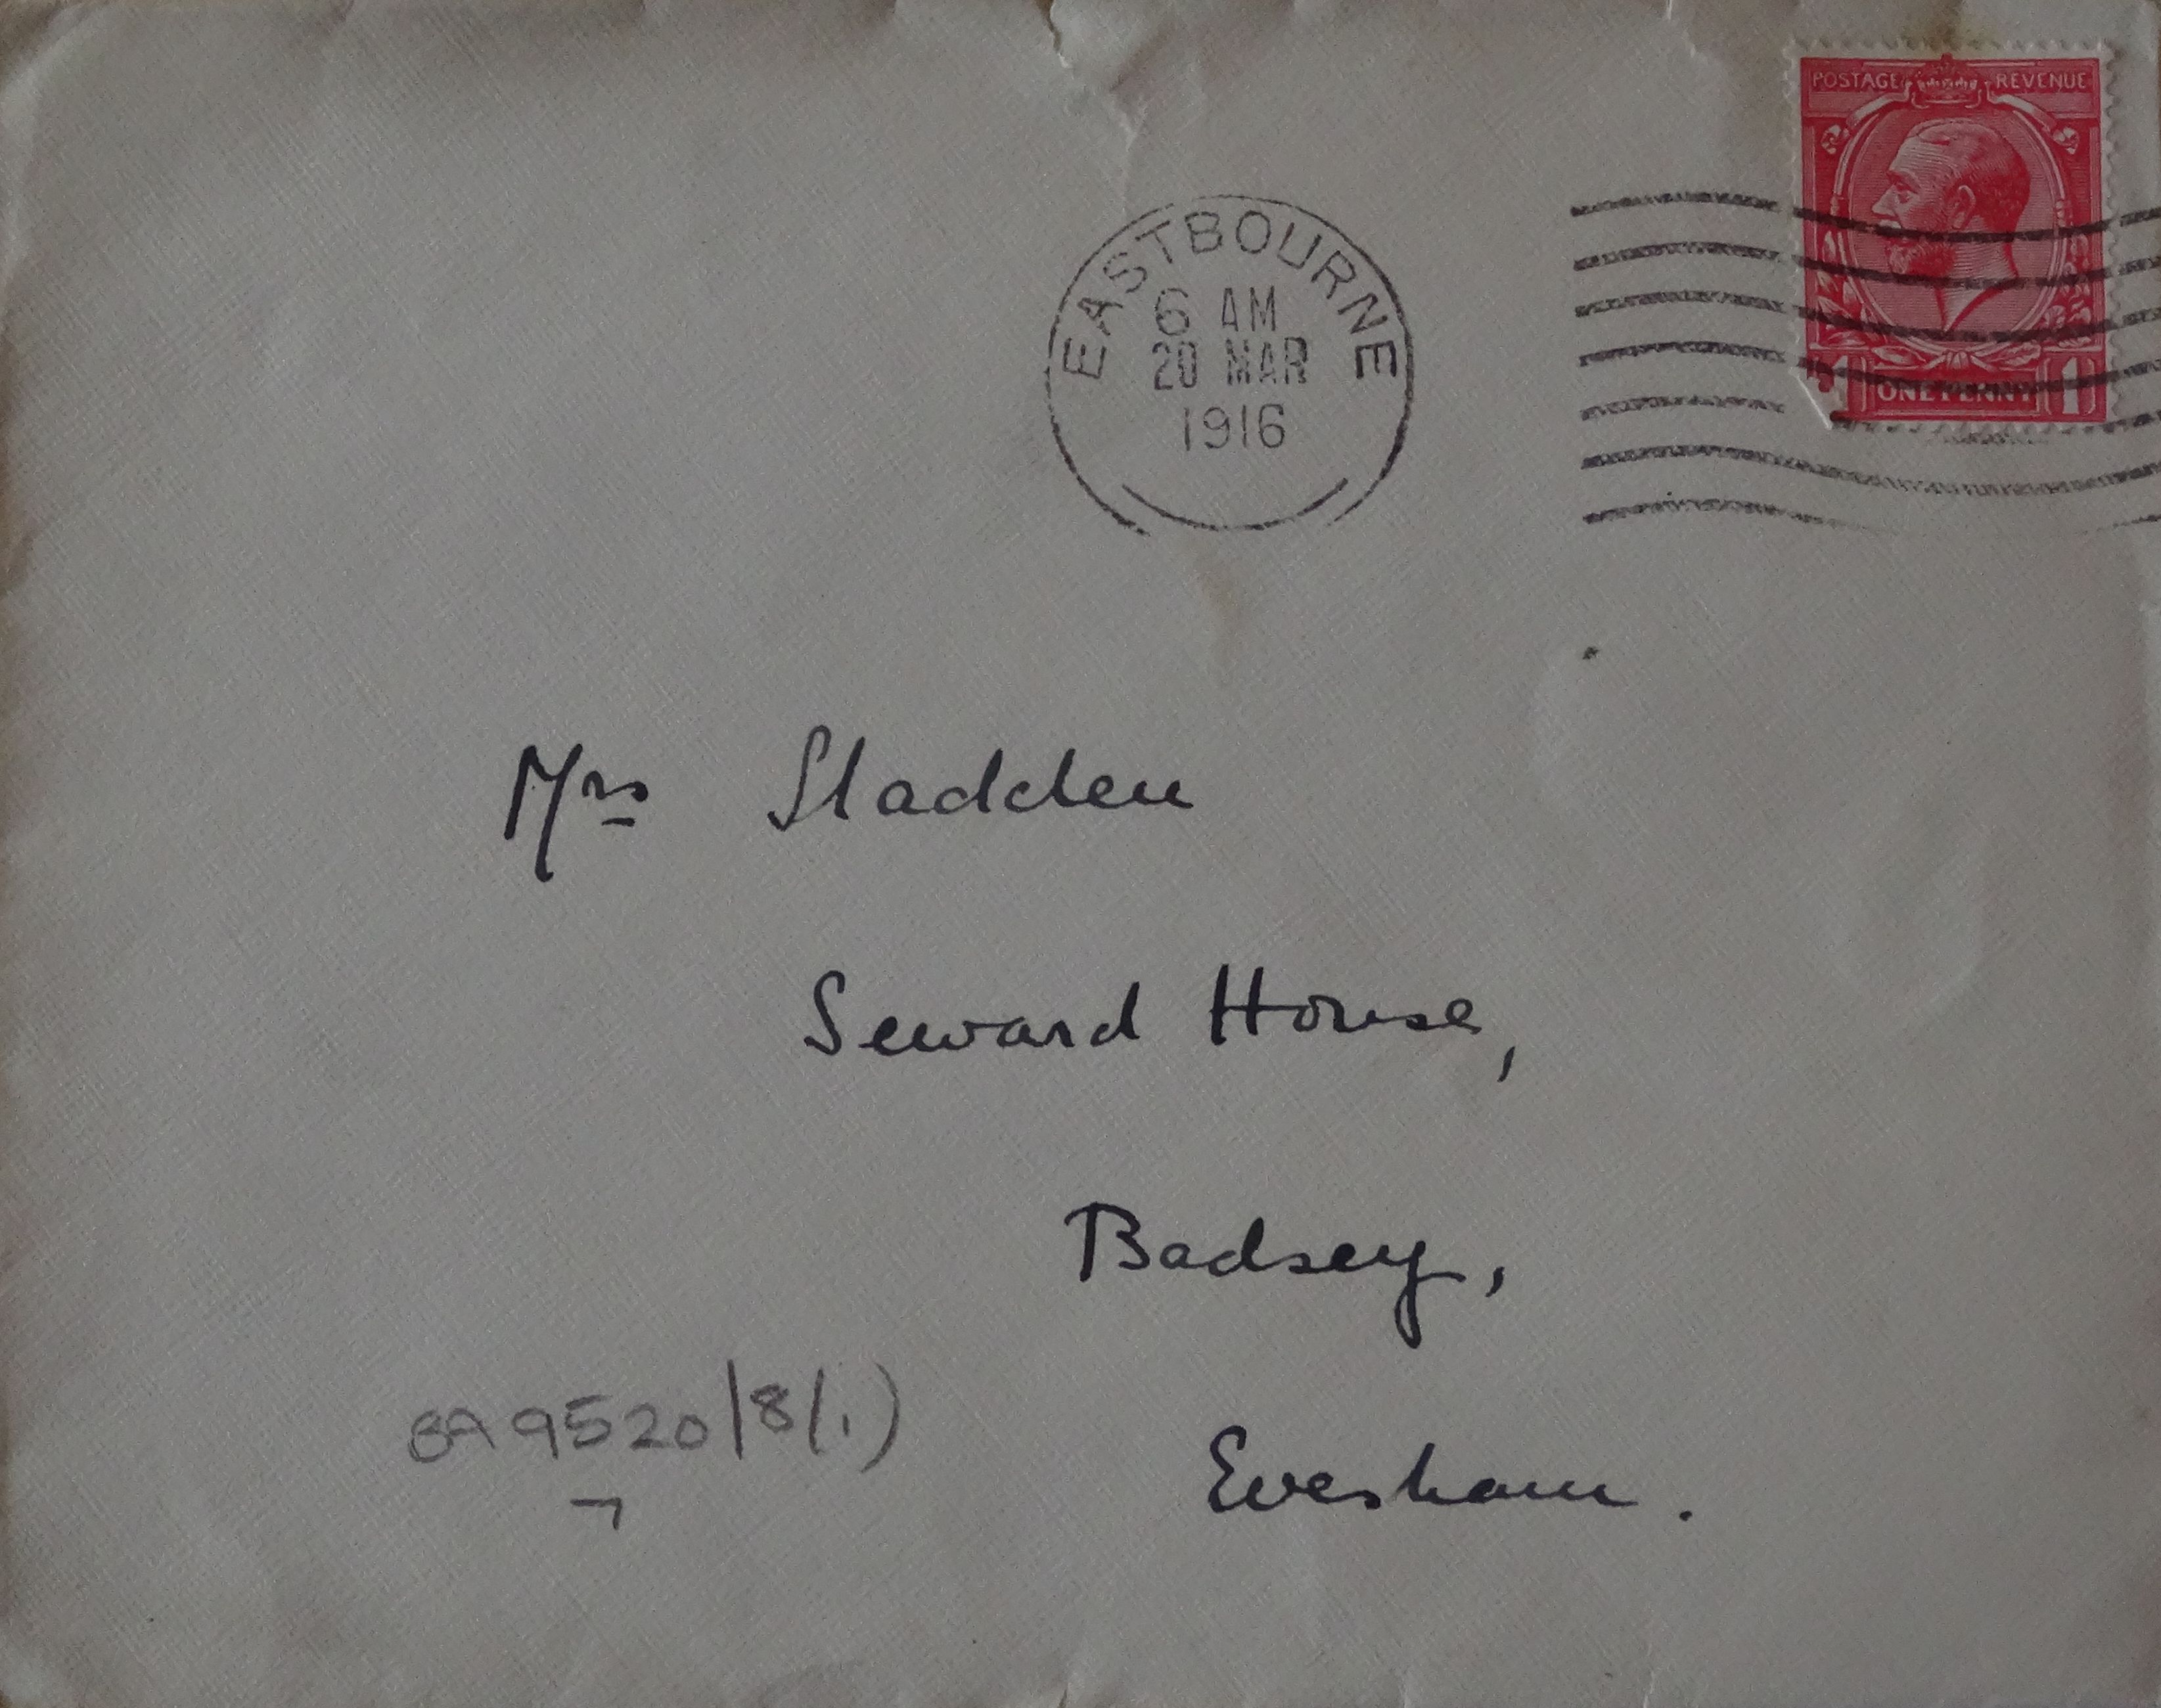 POSTAGE REVENUE
EASTBOURNE
6 AM
20 MAR
1916
ONE PENNY 1
Mrs Sladden
Seward House,
Badsey,
Evesham.
899520/8/1)
7